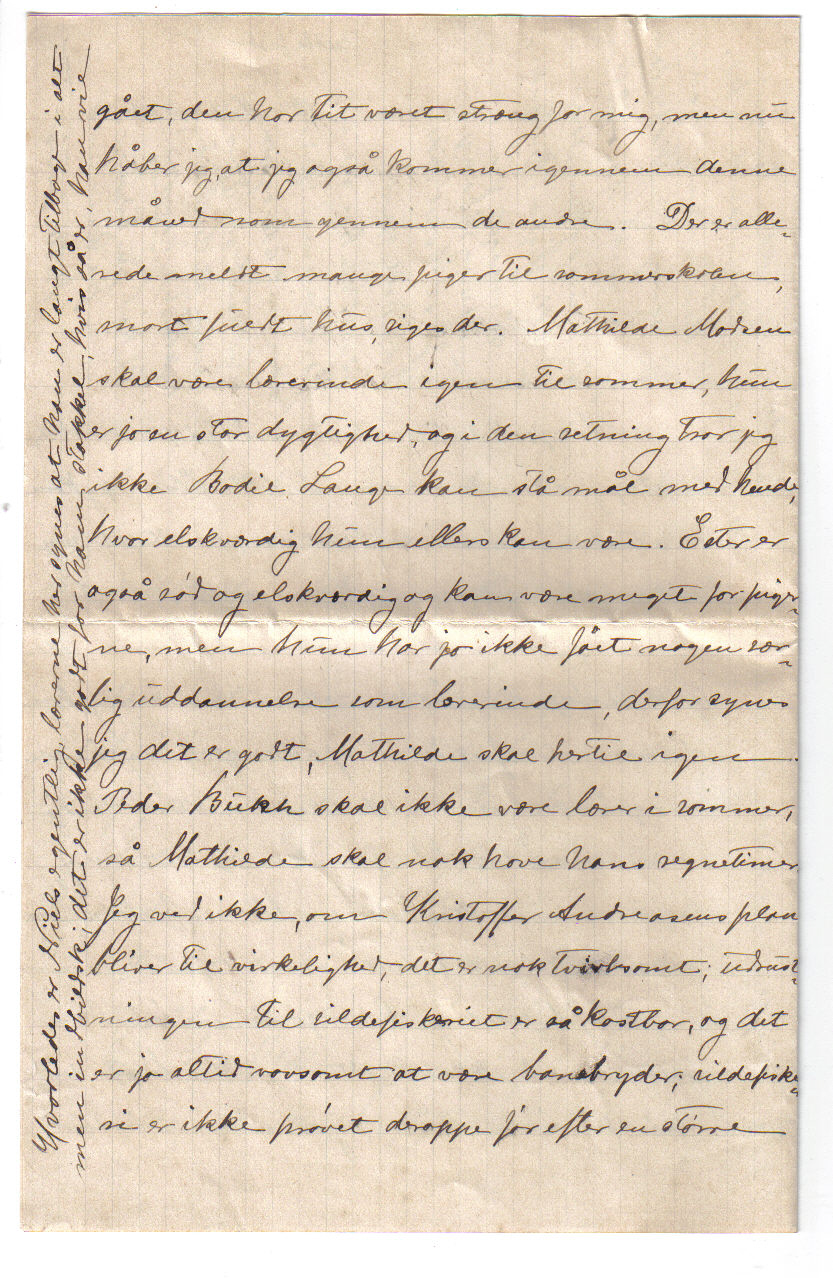 gået, den har tit været stræng for mig, men nu
håber jeg, at jeg også kommer igennem denne
måned som gennem de andre. Der er alle-
rede meldt mange piger til sommerskolen,
mort fuldt hus, siges der. Mathilde Madsen
skal være lærerinde igen til sommer, hun
er jo en stor dygtighed, og i den retning tror jeg
ikke Bodil Lange kan stå mål med hende,
hvor elskværdig hun ellers kan være. Ester er
også sød og elskværdig og kan være meget for piger-
ne, men hun har jo ikke fået nogen sær-
lig uddannelse som lærerinde, derfor synes
jeg det er godt, Mathilde skal hertil igen.
Peder Bukh skal ikke være lærer i sommer,
så Mathilde skal nok have hans regnetimer.
Jeg ved ikke, om Kristoffer Andreasens plan
bliver til virkelighed, det er nok tvivlsomt; udrust-
ningen til sildefiskeriet er så kostbar, og det
er jo altid vovsomt at være banebryder; sildefiske-
ri er ikke prøvet deroppe før efter en større
Hvorledes er Niels egentlig, lærerne her synes at han er langt tilbage i alt
men indbildsk, det er ikke godt for ham stakkel, hvis så er, han vie